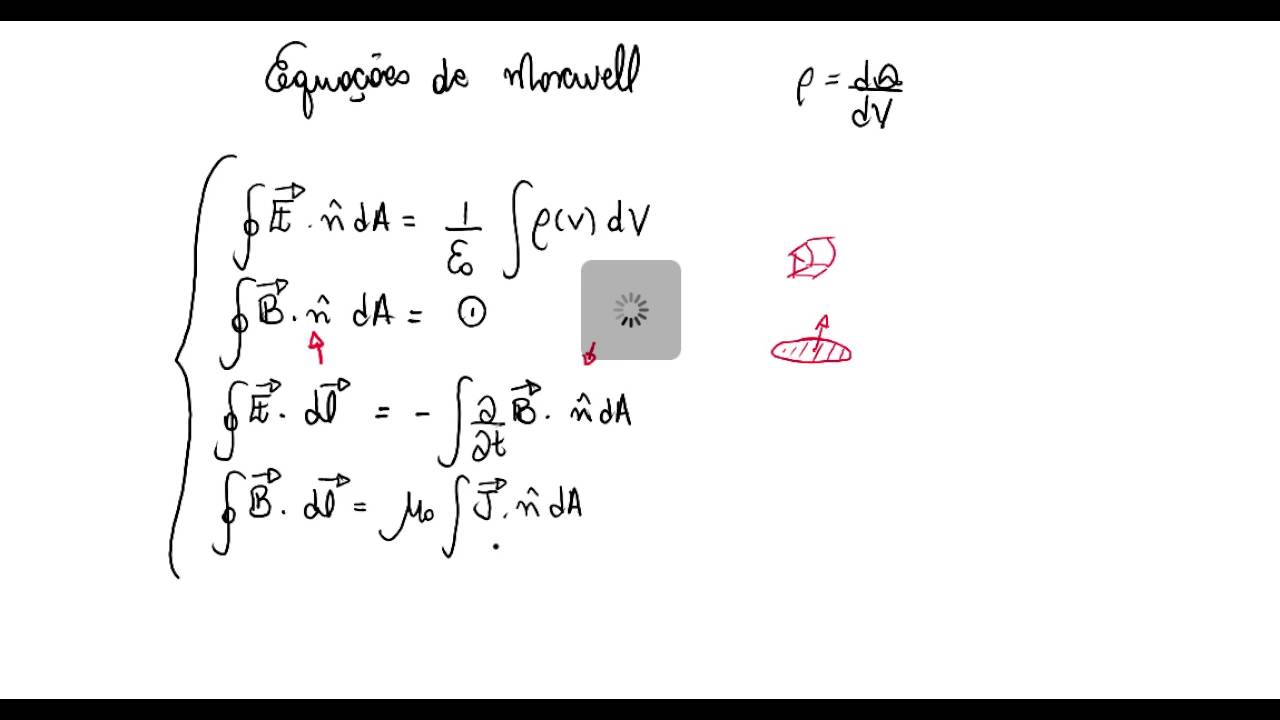 Equações de Maxwell
ρ = dQ/dV
∮ E⃗ . n̂ dA = 1/ε₀ ∫ ρ(v) dV
∮ B⃗ . n̂ dA = 0
∮ E⃗ . dl⃗ = - ∫ ∂/∂t B⃗ . n̂ dA
∮ B⃗ . dl⃗ = μ₀ ∫ J⃗ . n̂ dA